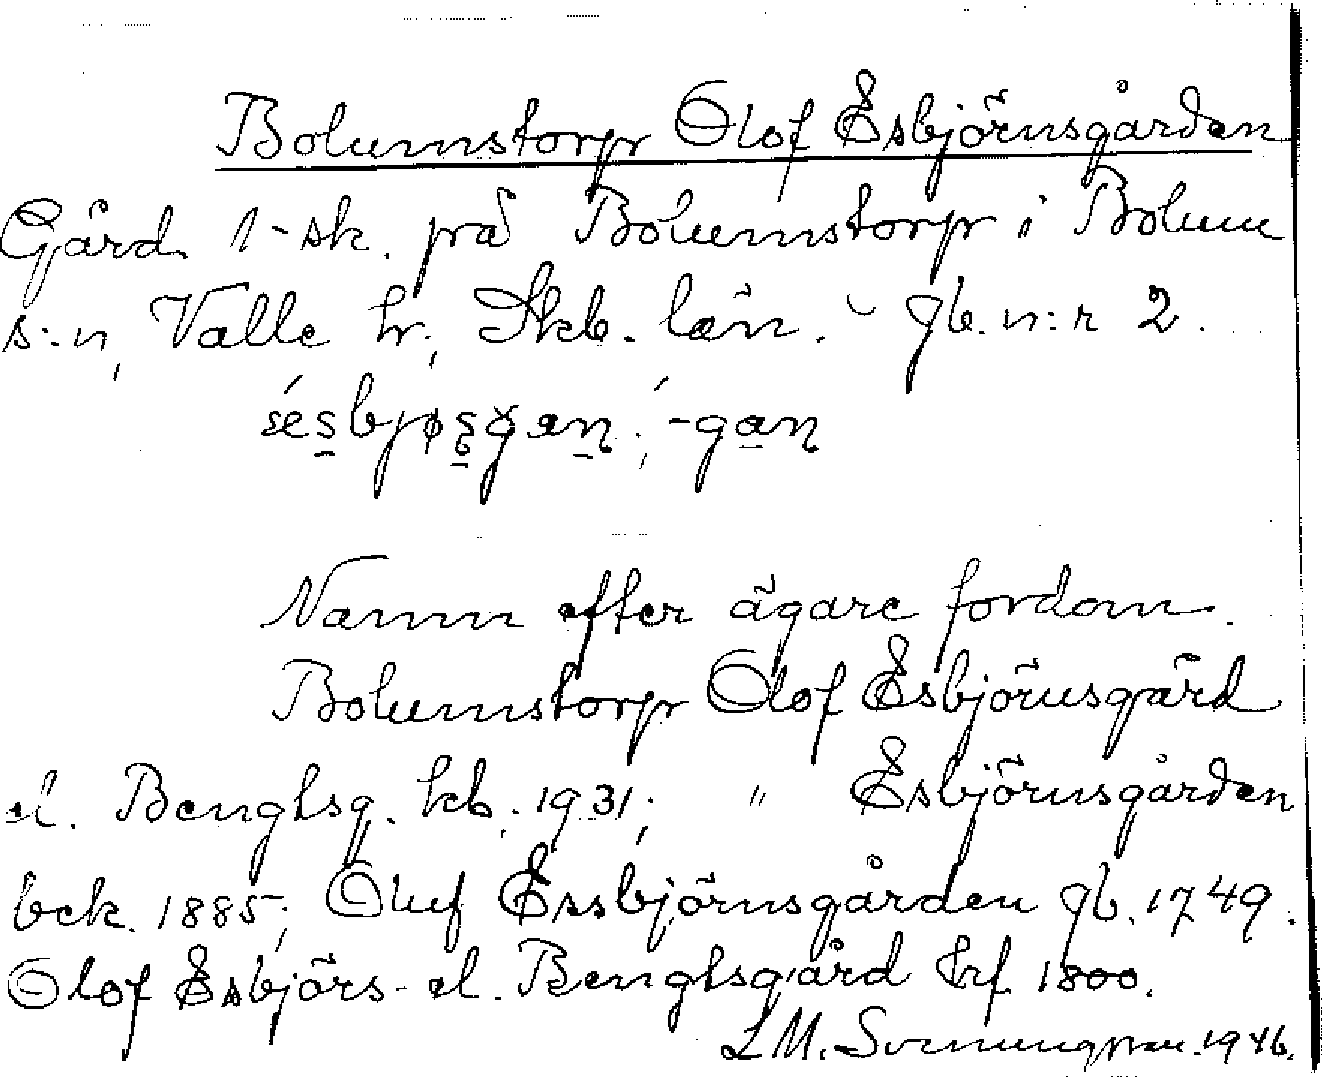 Bolumstorp Olof Esbjörnsgården
Gård 1-sk. på Bolumstorp i Bolum
s:n, Valle hr., Skb. län. - Jb. n:r 2.
-gan
Namn efter ägare fordom.
Bolumstorp Olof Esbjörnsgård
el. Bengtsg. kb. 1931; " Esbjörnsgården
bck. 1885; Oluf Essbjörnsgården Jb. 1749.
Olof Esbjörs- el. Bengtsgård Srf. 1800.
L M. Svenungsson. 1946.